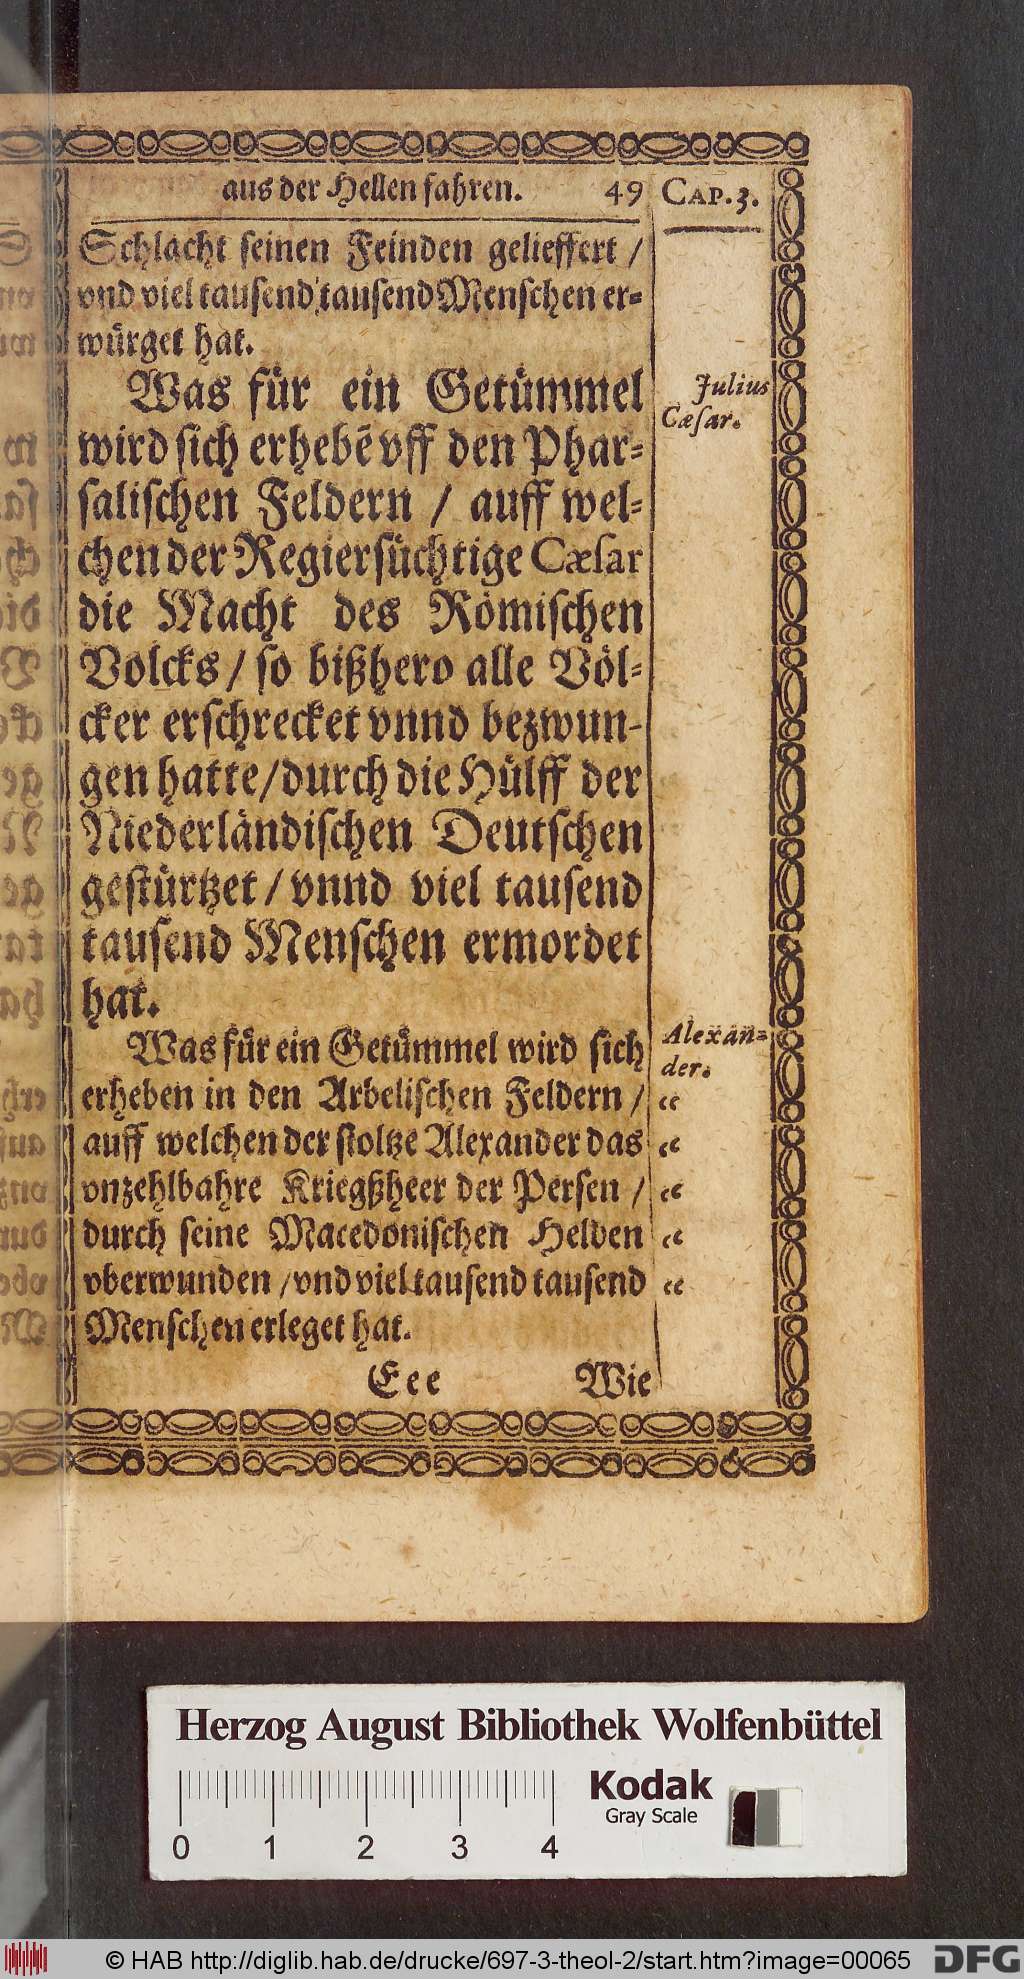 aus der Hellen fahren. 49 CAP. 3.
Schlacht seinen Feinden gelieffert /
vnd viel tausend tausend Menschen er-
würget hat.
Was für ein Getümmel
Julius
Cæsar.
wird sich erhebē vff den Phar-
salischen Feldern / auff wel-
chen der Regiersüchtige Cæsar
die Macht des Römischen
Volcks / so bißhero alle Völ-
cker erschrecket vnnd bezwun-
gen hatte / durch die Hülff der
Niederländischen Deutschen
gestürtzet / vnnd viel tausend
tausend Menschen ermordet
hat.
Was für ein Getümmel wird sich
Alexän-
der.
erheben in den Arbelischen Feldern / “
auff welchen der stoltze Alexander das “
vnzehlbahre Kriegßheer der Persen / “
durch seine Macedonischen Helden “
vberwunden / vnd viel tausend tausend “
Menschen erleget hat.
Eee Wie
Herzog August Bibliothek Wolfenbüttel
Kodak
Gray Scale
0 1 2 3 4
© HAB http://diglib.hab.de/drucke/697-3-theol-2/start.htm?image=00065 DFG